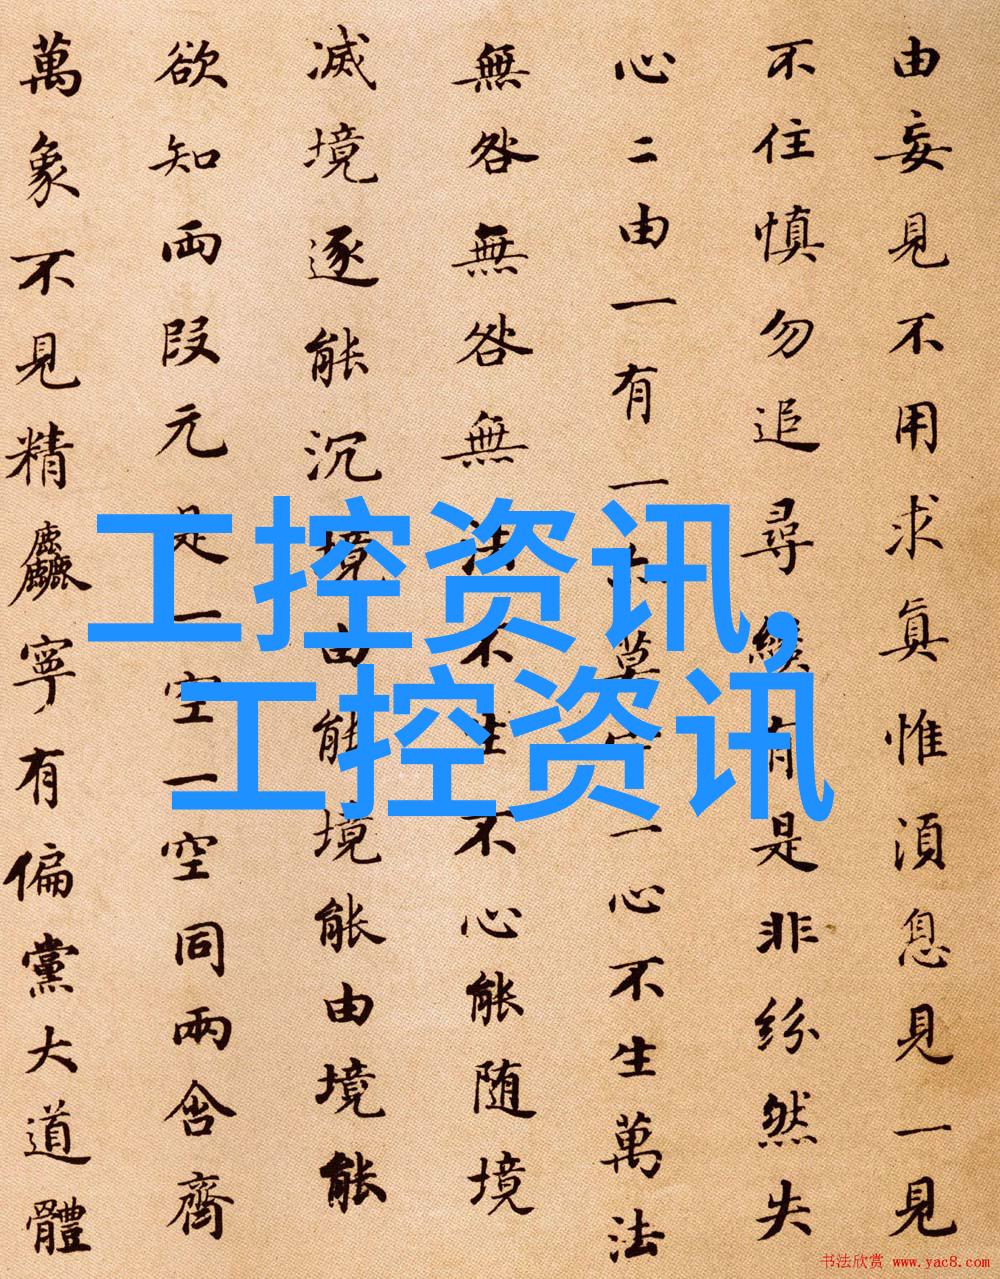 由妄見不用求真惟湏息見一見
不住慎勿追尋纔有是非紛然失
心二由一有一莫一心不生萬法
無咎無咎無法不生不心能随境
滅境逐能沉境由能境能由境能
欲知兩段元是一空一空同兩含齊
萬象不見精麤寧有偏黨大道體
工控资讯,
工控资讯
书法欣赏 www.yac8.com